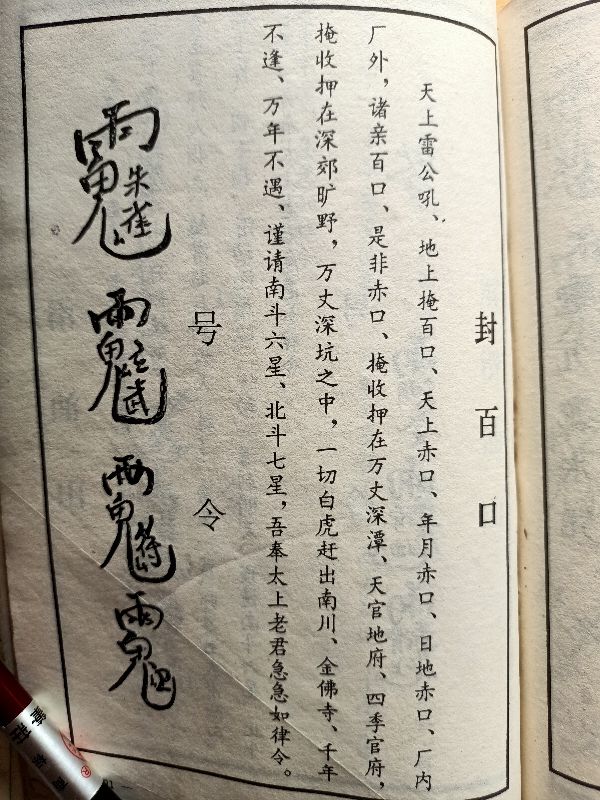 封百口
天上雷公吼、地上掩百口、天上赤口、年月赤口、日地赤口、厂内
厂外，诸亲百口、是非赤口、掩收押在万丈深潭、天官地府、四季官府，
掩收押在深郊旷野，万丈深坑之中，一切白虎赶出南川、金佛寺、千年
不逢、万年不遇、谨请南斗六星、北斗七星，吾奉太上老君急急如律令。
号令